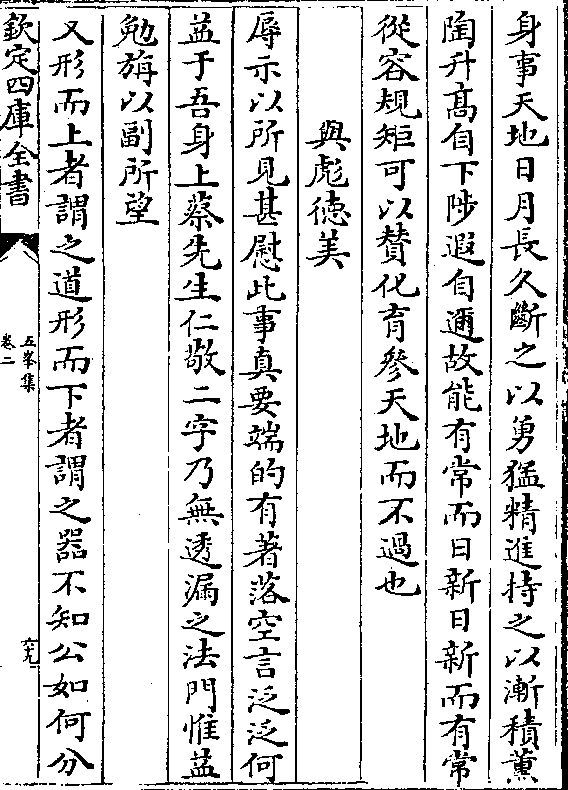 身事天地日月長久斷之以勇猛精進持之以漸積薰
陶升髙自下陟遐自邇故能有常而日新日新而有常
從容規矩可以賛化育參天地而不過也
與彪徳美
辱示以所見甚慰此事真要端的有著落空言泛泛何
益于吾身上蔡先生仁敬二字乃無透漏之法門惟益
勉旃以副所望
又形而上者謂之道形而下者謂之器不知公如何分
欽定四庫全書
五峯集
卷二
六九